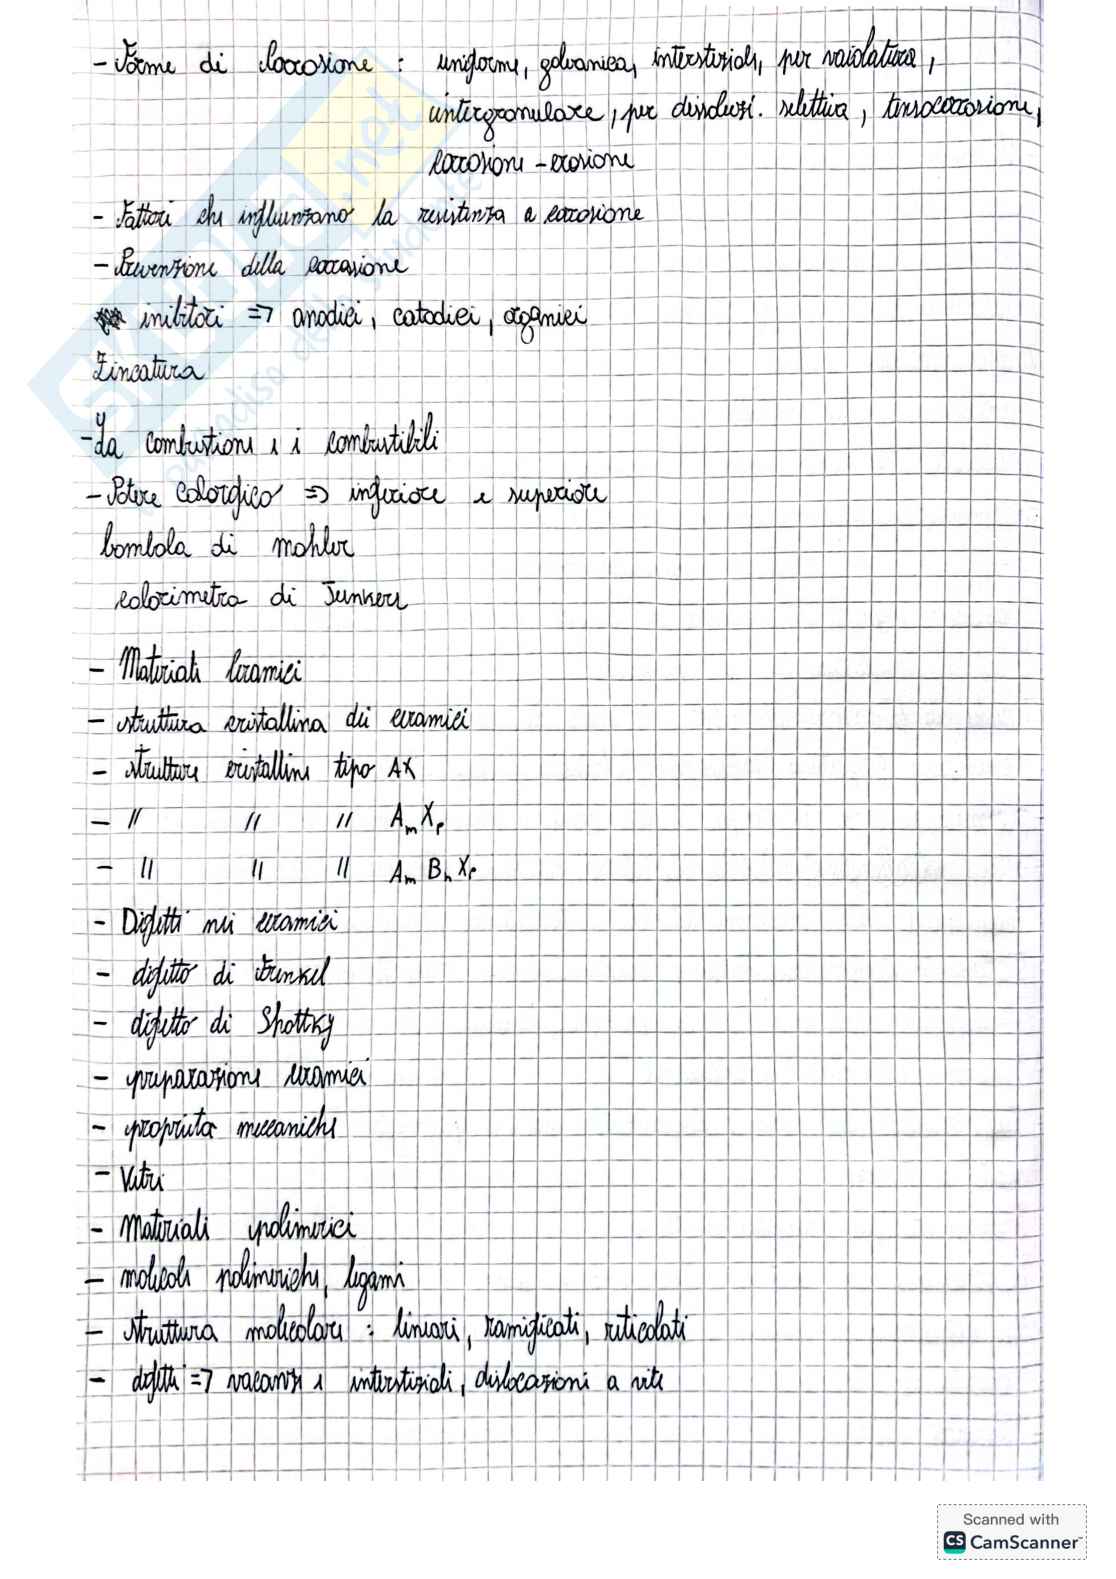 - Forme di Corrosione : uniforme, galvanica, interstiziale, per vaiolatura,
intergranulare, per dissoluzi. selettiva, tensocorrosione,
corrosione - erosione
- Fattori che influenzano la resistenza a corrosione
- Prevenzione della corrosione
inibitori => anodici, catodici, organici
Zincatura
- La combustione e i combustibili
- Potere Calorifico => inferiore e superiore
bombola di mahler
calorimetro di Junkers
- Materiali Ceramici
- struttura cristallina dei ceramici
- strutture cristalline tipo AX
- // // // AmXp
- // // // Am Bn Xp
- Difetti nei ceramici
- difetto di Frenkel
- difetto di Shottky
- preparazione ceramici
- proprietà meccaniche
- Vetri
- Materiali polimerici
- molecole polimeriche, legami
- struttura molecolare : lineari, ramificati, reticolati
- difetti => vacanze e interstiziali, dislocazioni a vite
SKUOLA.net
paradiso dello studente
Scanned with
CS CamScanner